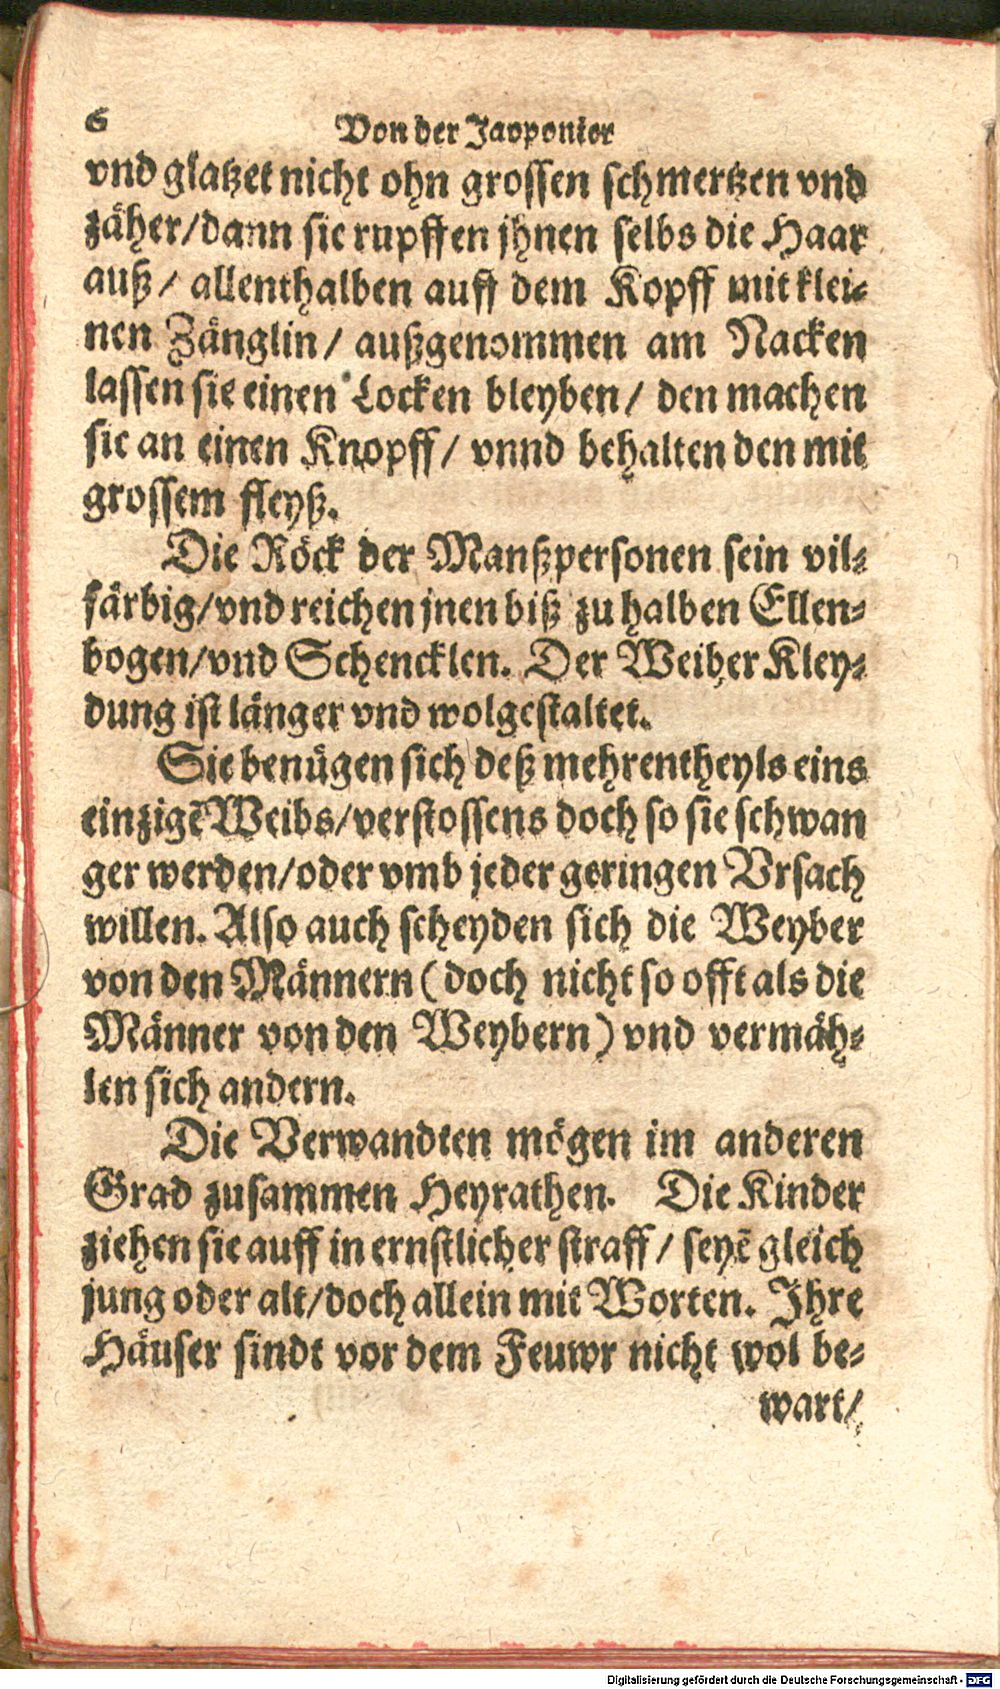 6 Von der Japponier
vnd glatzet nicht ohn grossen schmertzen vnd
zäher/dann sie rupffen jhnen selbs die Haar
auß/ allenthalben auff dem Kopff mit klei-
nen Zänglin/ außgenommen am Nacken
lassen sie einen Locken bleyben/ den machen
sie an einen Knopff/ vnnd behalten den mit
grossem fleyß.
Die Röck der Manßpersonen sein vil-
färbig/vnd reichen jnen biß zu halben Ellen-
bogen/vnd Schencklen. Der Weiber Kley-
dung ist länger vnd wolgestaltet.
Sie benügen sich deß mehrentheyls eins
einzigẽ Weibs/verstossens doch so sie schwan
ger werden/oder vmb jeder geringen Vrsach
willen. Also auch scheyden sich die Weyber
von den Männern (doch nicht so offt als die
Männer von den Weybern) vnd vermäh-
len sich andern.
Die Verwandten mögen im anderen
Grad zusammen Heyrathen. Die Kinder
ziehen sie auff in ernstlicher straff/ seyẽ gleich
jung oder alt/doch allein mit Worten. Ihre
Häuser sindt vor dem Feuwr nicht wol be-
wart/
Digitalisierung gefördert durch die Deutsche Forschungsgemeinschaft - DFG